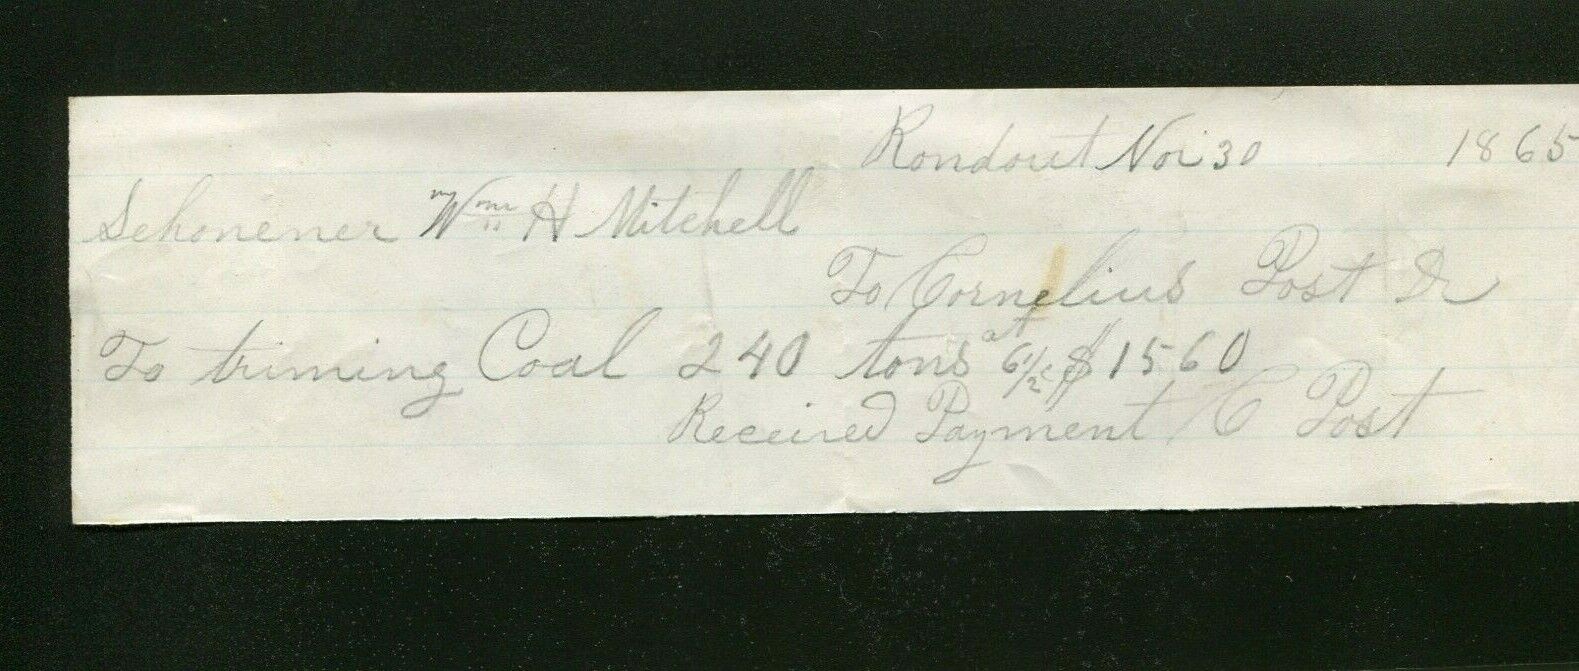 Rondout Nov 30 1865
Schonener Wm H Mitchell
To Cornelius Post Dr
To triming Coal 240 tons at 6 1/2c $1560
Received Payment C Post